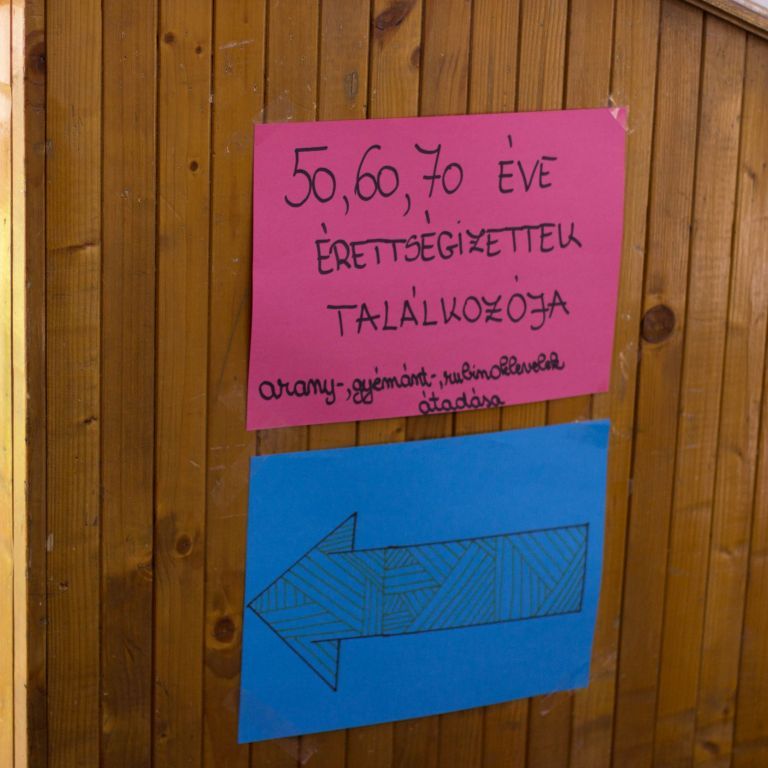 50, 60, 70 ÉVE
ÉRETTSÉGIZETTEK
TALÁLKOZÓJA
arany-, gyémánt-, rubinoklevelek
átadása